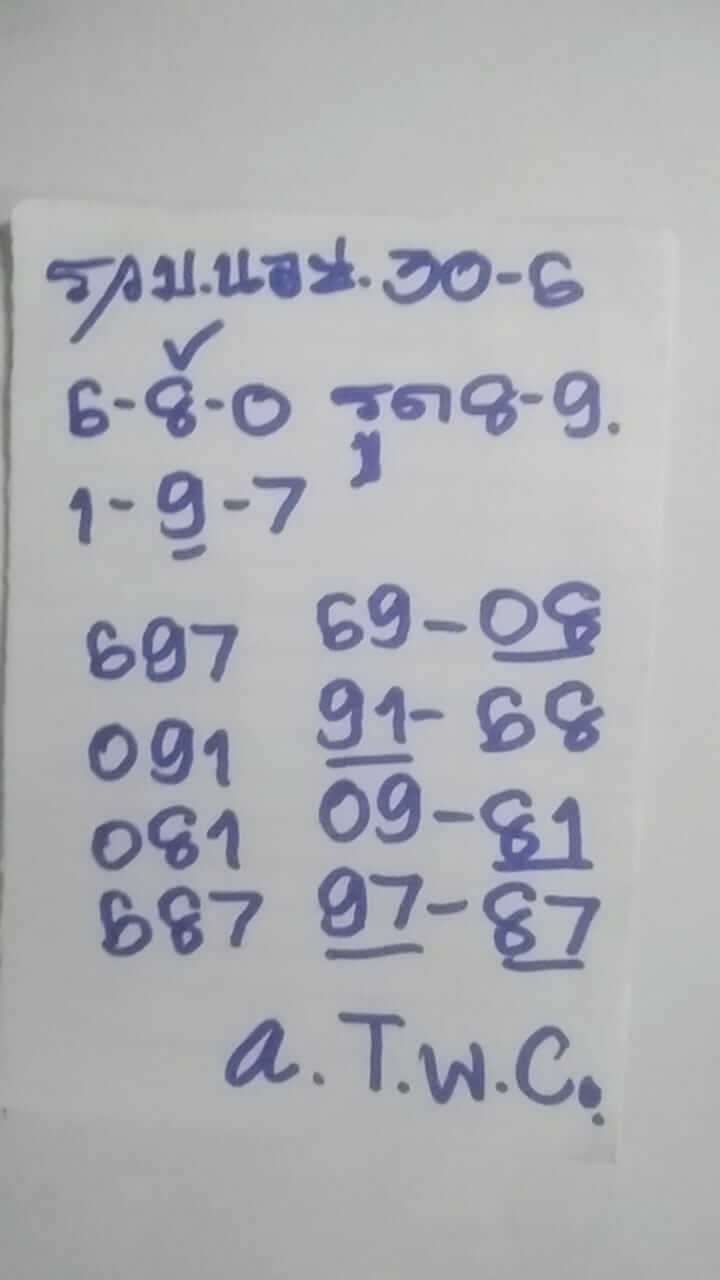 รวม.นอส. 30-6
6-8-0 รูด 8-9.
1-9-7
697 69-08
091 91-68
081 09-81
687 97-87
a. T.W.C.